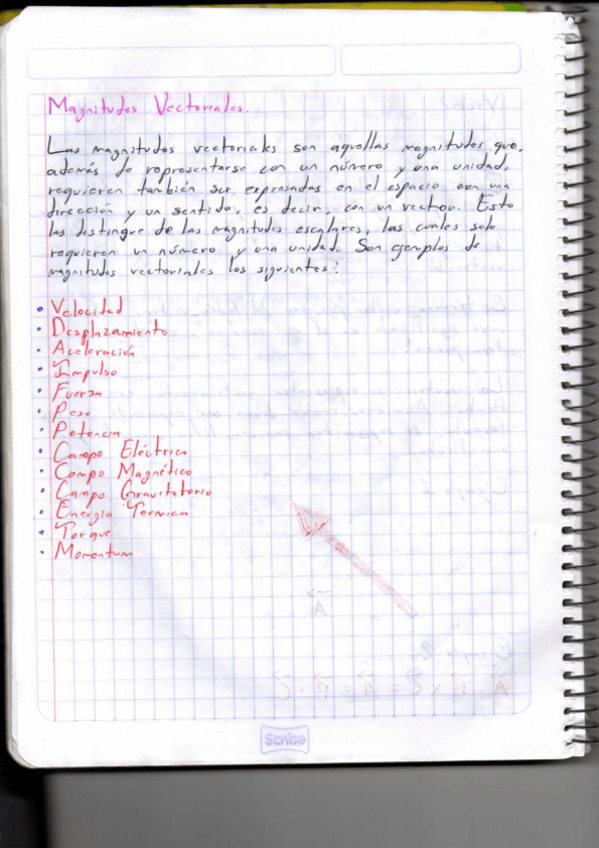 Magnitudes Vectoriales.
Las magnitudes vectoriales son aquellas magnitudes que,
además de representarse con un número y una unidad,
requieren también ser expresadas en el espacio con una
dirección y un sentido, es decir, con un vector. Esto
las distingue de las magnitudes escalares, las cuales solo
requieren un número y una unidad. Son ejemplos de
magnitudes vectoriales los siguientes:
• Velocidad
• Desplazamiento
• Aceleración
• Impulso
• Fuerza
• Peso
• Potencia
• Campo Eléctrico
• Campo Magnético
• Campo Gravitatorio
• Energía Térmica
• Torque
• Momentum
Scribe